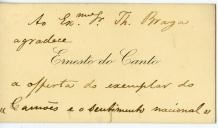 Ao Ex.mo Sr. Th. Braga
agradece
Ernesto do Canto
a offerta do exemplar do
"Camões e o sentimento nacional"